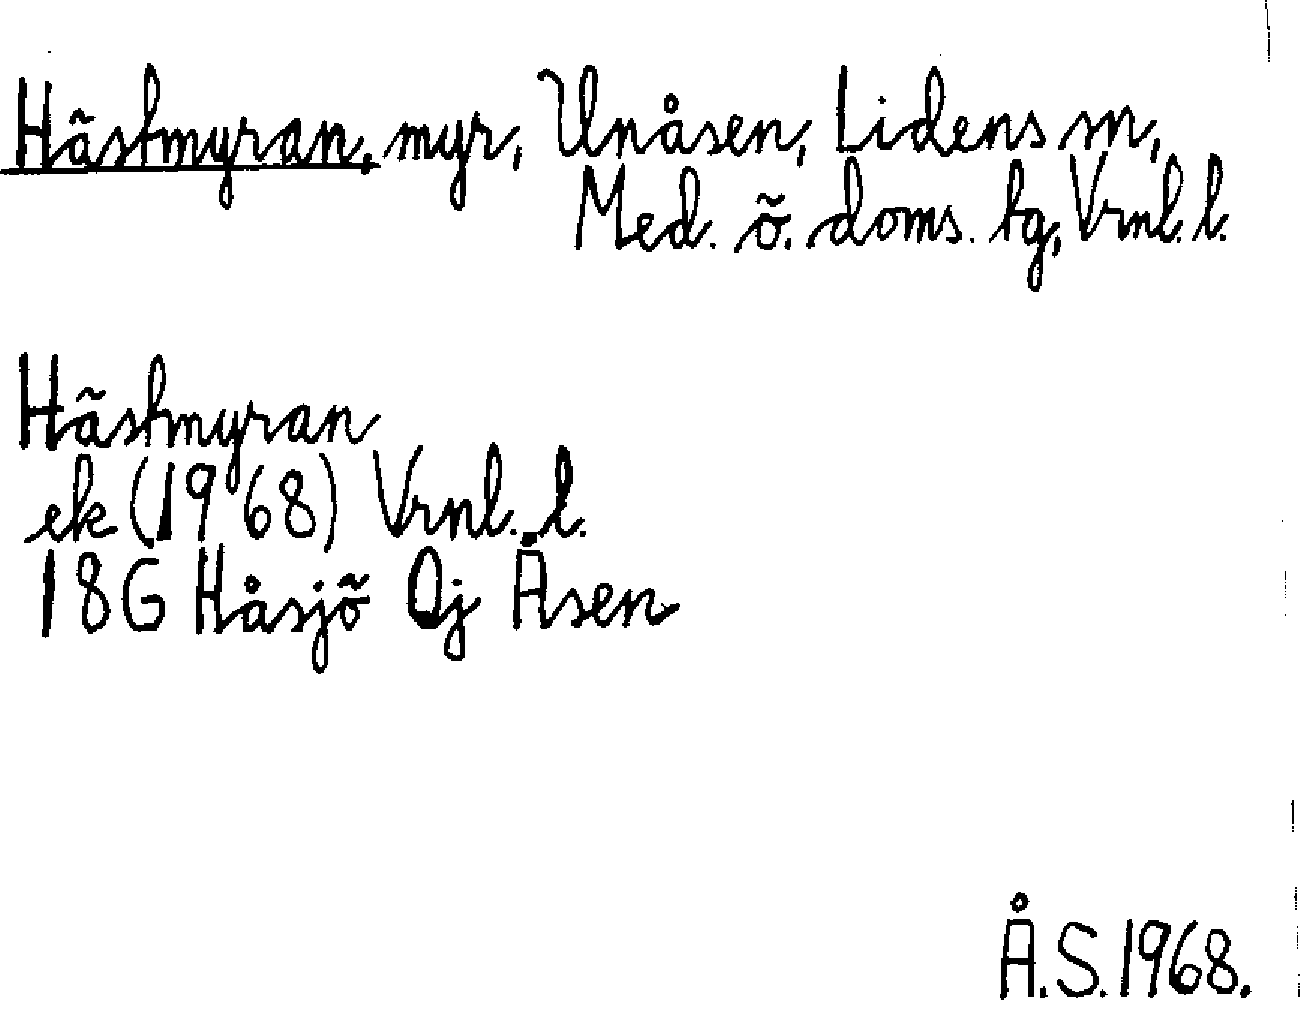 Hästmyran, myr, Unåsen, Lidens sn,
Med. ö. doms. tg, Vrnl. l.
Hästmyran
ek (1968) Vrnl. l.
18G Håsjö Oj Åsen
Å.S. 1968.